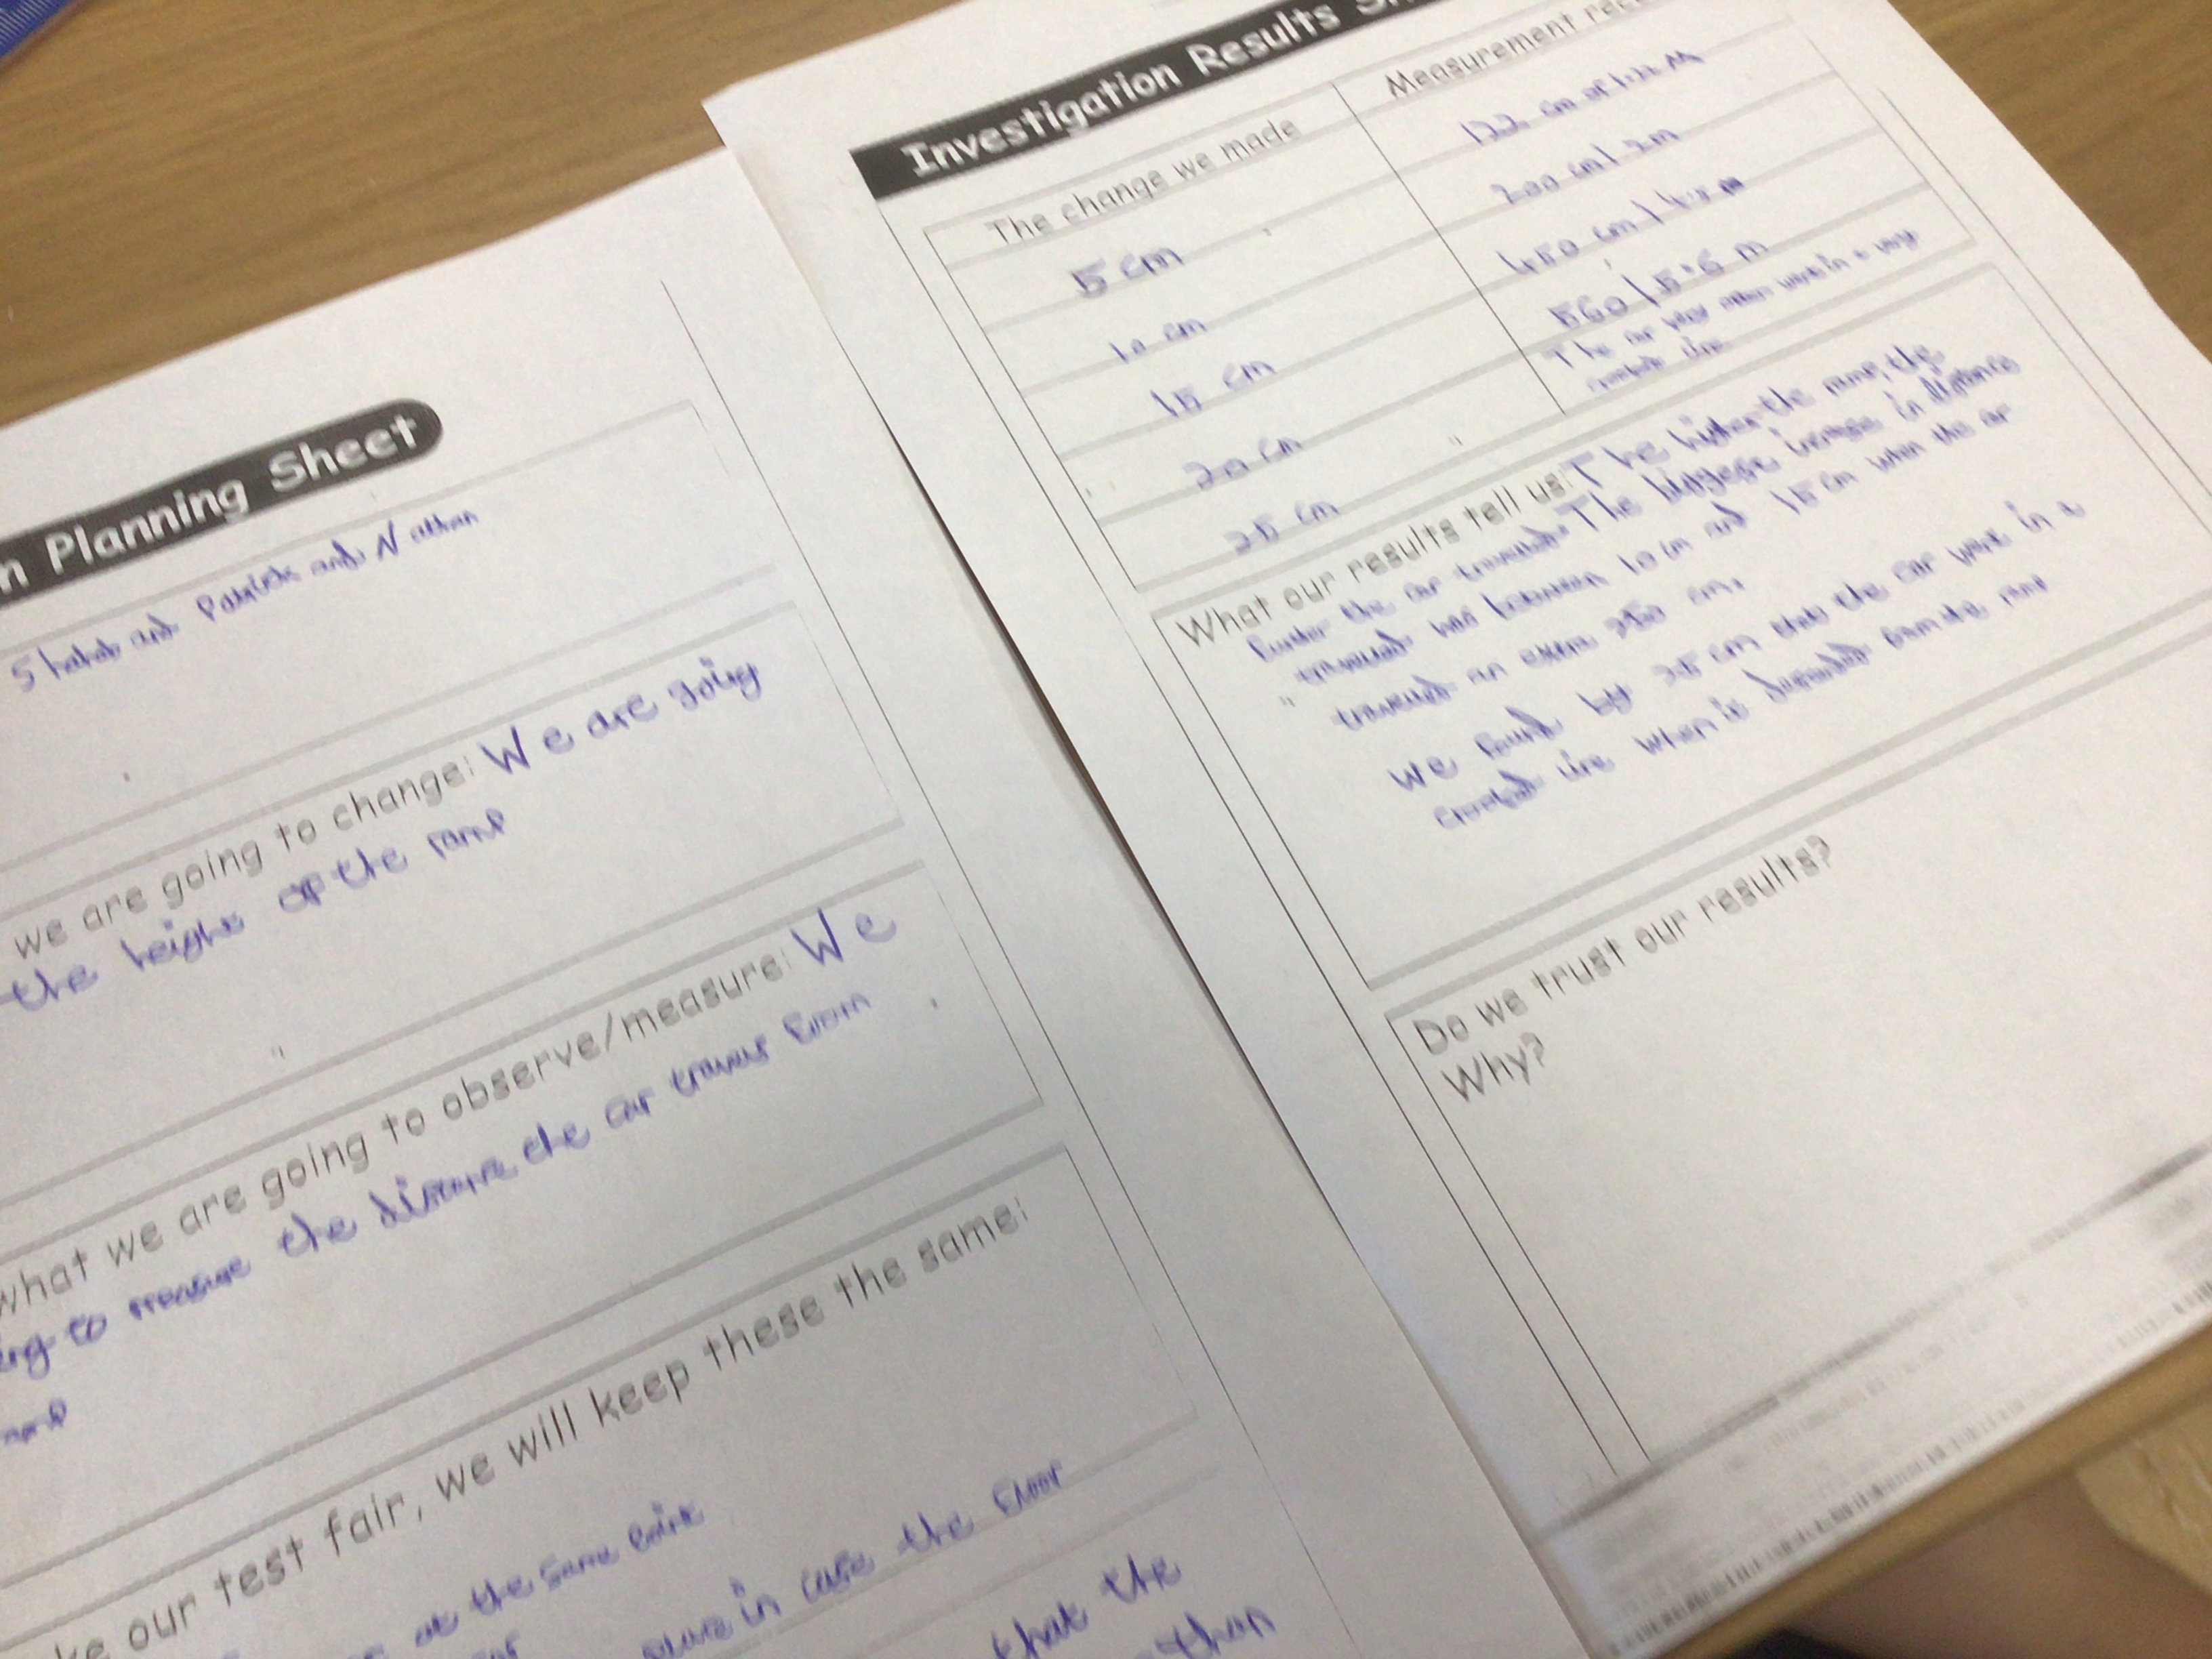 n Planning Sheet
Shahab and Patrick and Nathan
we are going to change: We are going
the height of the ramp
what we are going to observe/measure: We
ing to measure the distance the car travels from
ramp
ke our test fair, we will keep these the same:
at the same point
place in case the floor
that the
than
Investigation Results
The change we made
Measurement rec
5 cm
122 cm or 1.22 M
10 cm
200 cm / 2m
15 cm
450 cm / 4.5 m
20 cm
560 / 5.6 m
25 cm
The car kept went in a
crooked line
What our results tell us: The higher the ramp, the
further the car travelled. The biggest increase in distance
travelled was between 10 cm and 15 cm when the car
travelled an extra 250 cm.
We found by 25 cm that the car went in a
crooked line when it from the ramp
Do we trust our results?
Why?